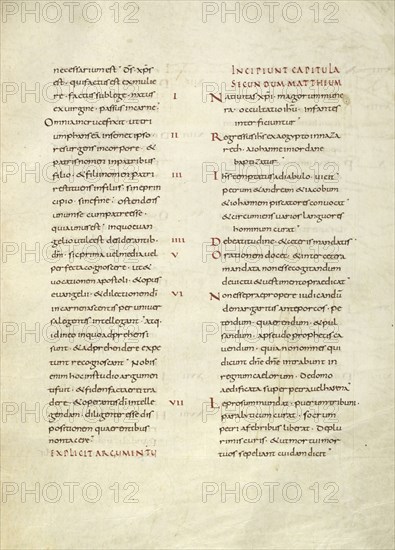 necessarium est · Ds xps
est · qui factus est ex mulie
re · factus sub lege · natus
ex virgine · passus in carne ·
Omnia in cruce fixit · ut tri
umphans ea in semet ipso
resurgens in corpore · &
patris nomen in patribus
filio · & filii nomen patri
restituens in filiis · sine prin
cipio · sine fine · ostendens
unum se cum patre esse ·
quia unus est · In quo euan
gelio utile est desiderantib ·
dm · sic prima uel media uel
perfecta cognoscere · ut &
uocationem apostoli · & opus
euangelii · & dilectionem di
in carne nascentis per uniuer
sa legentes intellegant · atq ·
id in eo in quo adprehensi
sunt & adprehendere expe
tunt recognoscant · Nobis
enim hoc in studio argumen
ti fuit · & fidem factae rei tra
dere · & operantis di intelle
gendam · diligenter esse dis
positionem quaerentibus
non tacere ·
EXPLICIT ARGUMENTU
INCIPIUNT CAPITULA
SECUNDUM MATTHEUM
I Natiuitas xpi · magorum mune
ra · occultatio ihu · infantes
interficiuntur ·
II Regressus ihs ex aegypto in naza
reth · a iohanne in iordane
baptizatur ·
III Ihs temptatus a diabulo · uicit ·
petrum & andream & iacobum
& iohannem piscatores conuocat
& circumiens uarios languores
hominum curat ·
IIII De beatitudine · & ceteris mandatis ·
V Orationem docet · & inter cetera
mandata non esse cogitandum
de uictu & uestimento praedicat ·
VI Non esse prae propere iudicandum
de margaritis ante porcos · pe
tendum · quaerendum · & pul
sandum · a pseudo prophetis ca
uendum · quia non omnes qui
dicunt dne dne intrabunt in
regnum caelorum · De domo
aedificata super petra uel harena ·
VII Leprosum mundat · puerum tribuni
paralyticum curat · socrum
petri a febribus liberat · De plu
rimis curis · & ut mortui mor
tuos sepeliant cuidam dicit ·
PHOTO 12